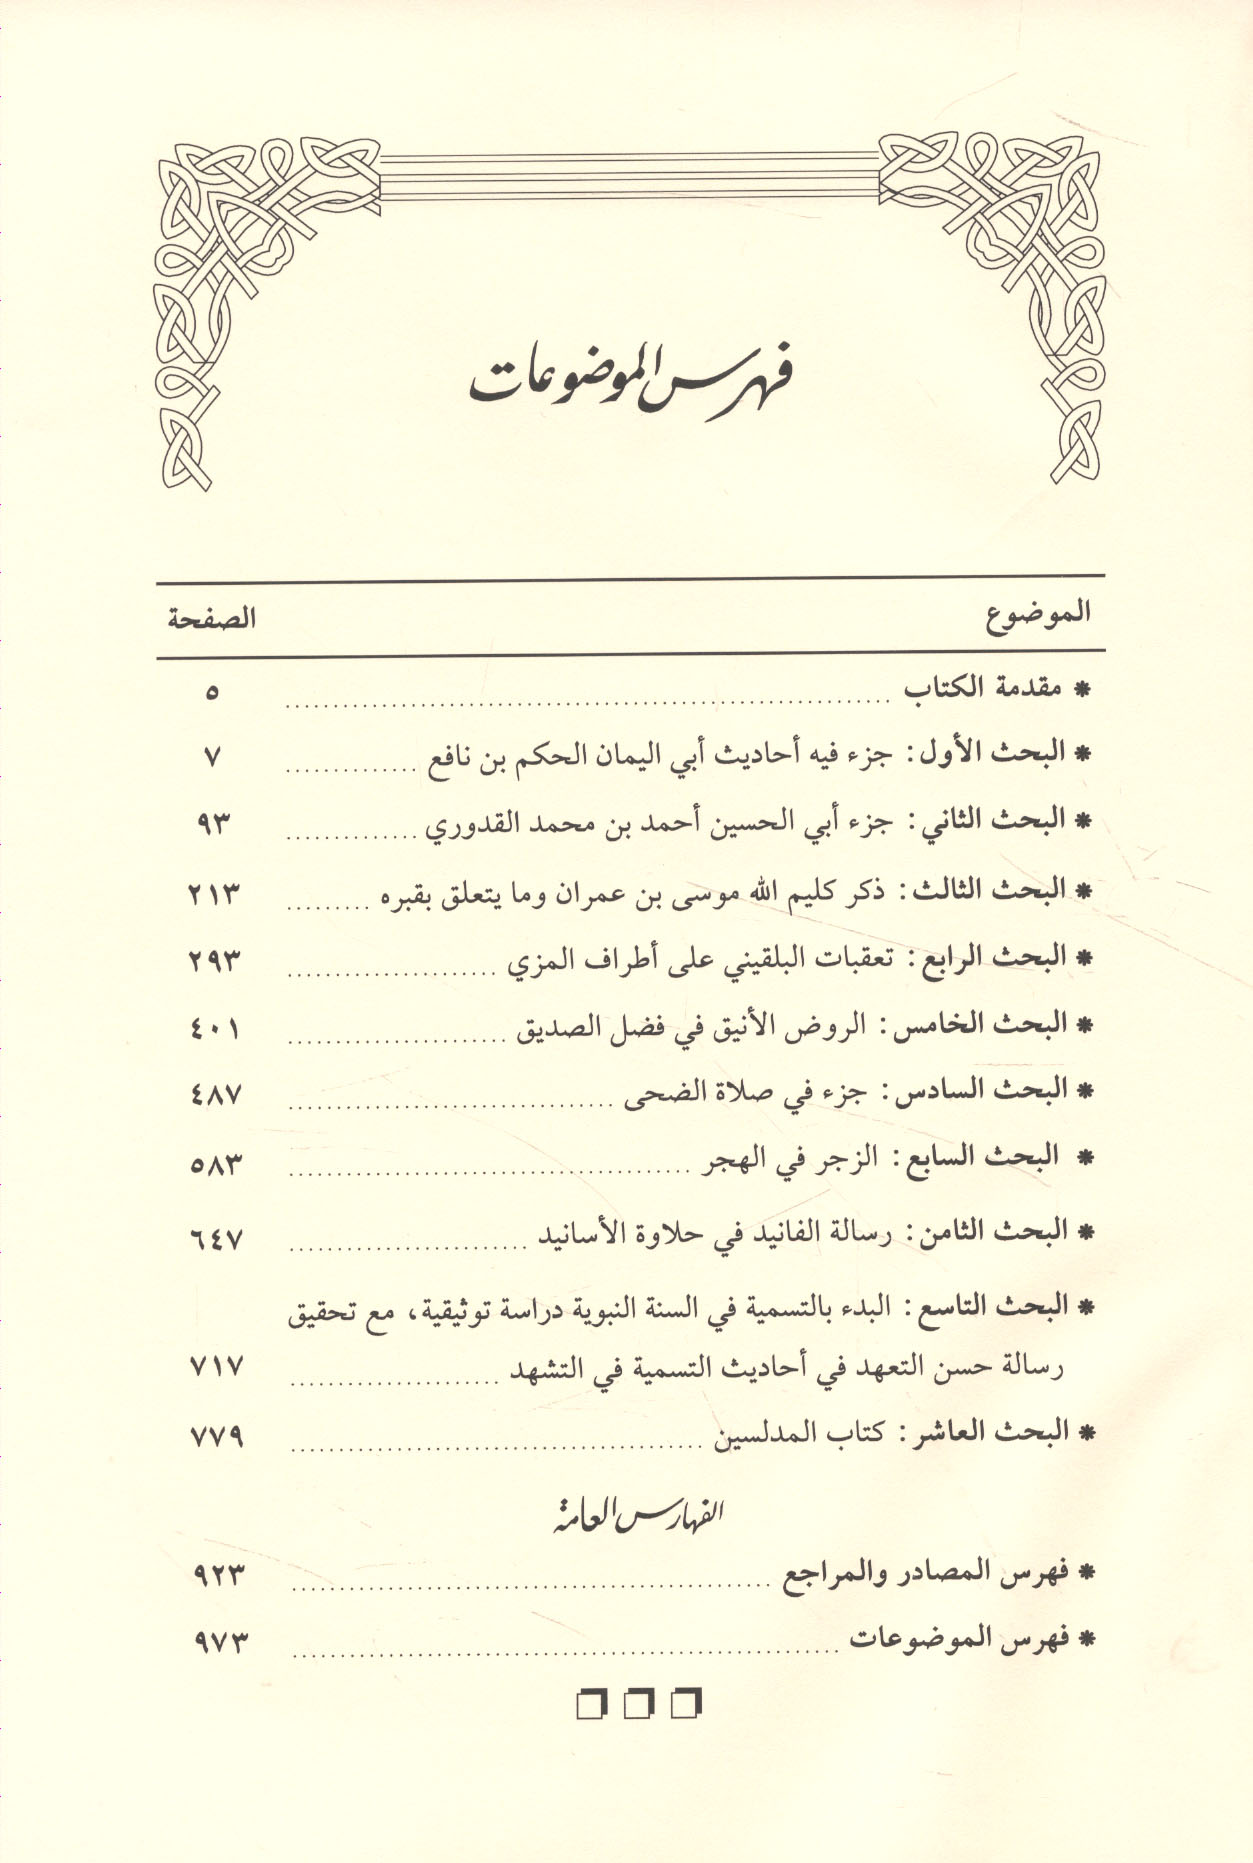 فهرس الموضوعات
الموضوع الصفحة
* مقدمة الكتاب ........ ٥
* البحث الأول: جزء فيه أحاديث أبي اليمان الحكم بن نافع ........ ٧
* البحث الثاني: جزء أبي الحسين أحمد بن محمد القدوري ........ ٩٣
* البحث الثالث: ذكر كليم الله موسى بن عمران وما يتعلق بقبره ........ ٢١٣
* البحث الرابع: تعقبات البلقيني على أطراف المزي ........ ٢٩٣
* البحث الخامس: الروض الأنيق في فضل الصديق ........ ٤٠١
* البحث السادس: جزء في صلاة الضحى ........ ٤٨٧
* البحث السابع: الزجر في الهجر ........ ٥٨٣
* البحث الثامن: رسالة الفانيد في حلاوة الأسانيد ........ ٦٤٧
* البحث التاسع: البدء بالتسمية في السنة النبوية دراسة توثيقية، مع تحقيق
رسالة حسن التعهد في أحاديث التسمية في التشهد ........ ٧١٧
* البحث العاشر: كتاب المدلسين ........ ٧٧٩
الفهارس العامة
* فهرس المصادر والمراجع ........ ٩٢٣
* فهرس الموضوعات ........ ٩٧٣